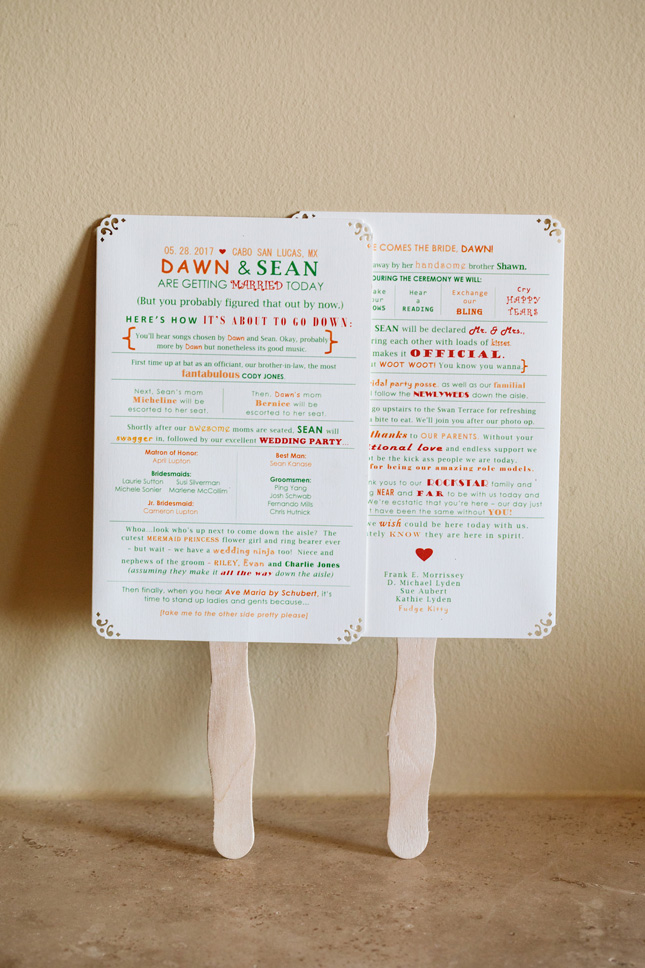 05. 28. 2017 ♥ CABO SAN LUCAS, MX
DAWN & SEAN
ARE GETTING MARRIED TODAY
(But you probably figured that out by now.)
HERE'S HOW IT'S ABOUT TO GO DOWN:
{ You'll hear songs chosen by Dawn and Sean. Okay, probably
more by Dawn but nonetheless its good music. }
First time up at bat as an officiant, our brother-in-law, the most
fantabulous CODY JONES.
Next, Sean's mom
Micheline will be
escorted to her seat.
Then, Dawn's mom
Bernice will be
escorted to her seat.
Shortly after our awesome moms are seated, SEAN will
swagger in, followed by our excellent WEDDING PARTY...
Matron of Honor:
April Lupton
Bridesmaids:
Laurie Sutton Susi Silverman
Michele Sonier Marlene McCollim
Jr. Bridesmaid:
Cameron Lupton
Best Man:
Sean Kanase
Groomsmen:
Ping Yang
Josh Schwab
Fernando Mills
Chris Hutnick
Whoa...look who's up next to come down the aisle? The
cutest MERMAID PRINCESS flower girl and ring bearer ever
- but wait - we have a wedding ninja too! Niece and
nephews of the groom - RILEY, Evan and Charlie Jones
(assuming they make it all the way down the aisle)
Then finally, when you hear Ave Maria by Schubert, it's
time to stand up ladies and gents because...
[take me to the other side pretty please]
COMES THE BRIDE, DAWN!
away by her handsome brother Shawn.
DURING THE CEREMONY WE WILL:
Hear
a
READING
Exchange
our
BLING
Cry
HAPPY
TEARS
SEAN will be declared Mr. & Mrs.,
ring each other with loads of kisses
makes it OFFICIAL.
WOOT WOOT! You know you wanna}
bridal party posse, as well as our familial
follow the NEWLYWEDS down the aisle.
go upstairs to the Swan Terrace for refreshing
bite to eat. We'll join you after our photo op.
thanks to OUR PARENTS. Without your
love and endless support we
be the kick ass people we are today.
for being our amazing role models.
you to our ROCKSTAR family and
NEAR and FAR to be with us today and
We're ecstatic that you're here - our day just
have been the same without YOU!
we wish could be here today with us.
KNOW they are here in spirit.
Frank E. Morrissey
D. Michael Lyden
Sue Aubert
Kathie Lyden
Fudge Kitty